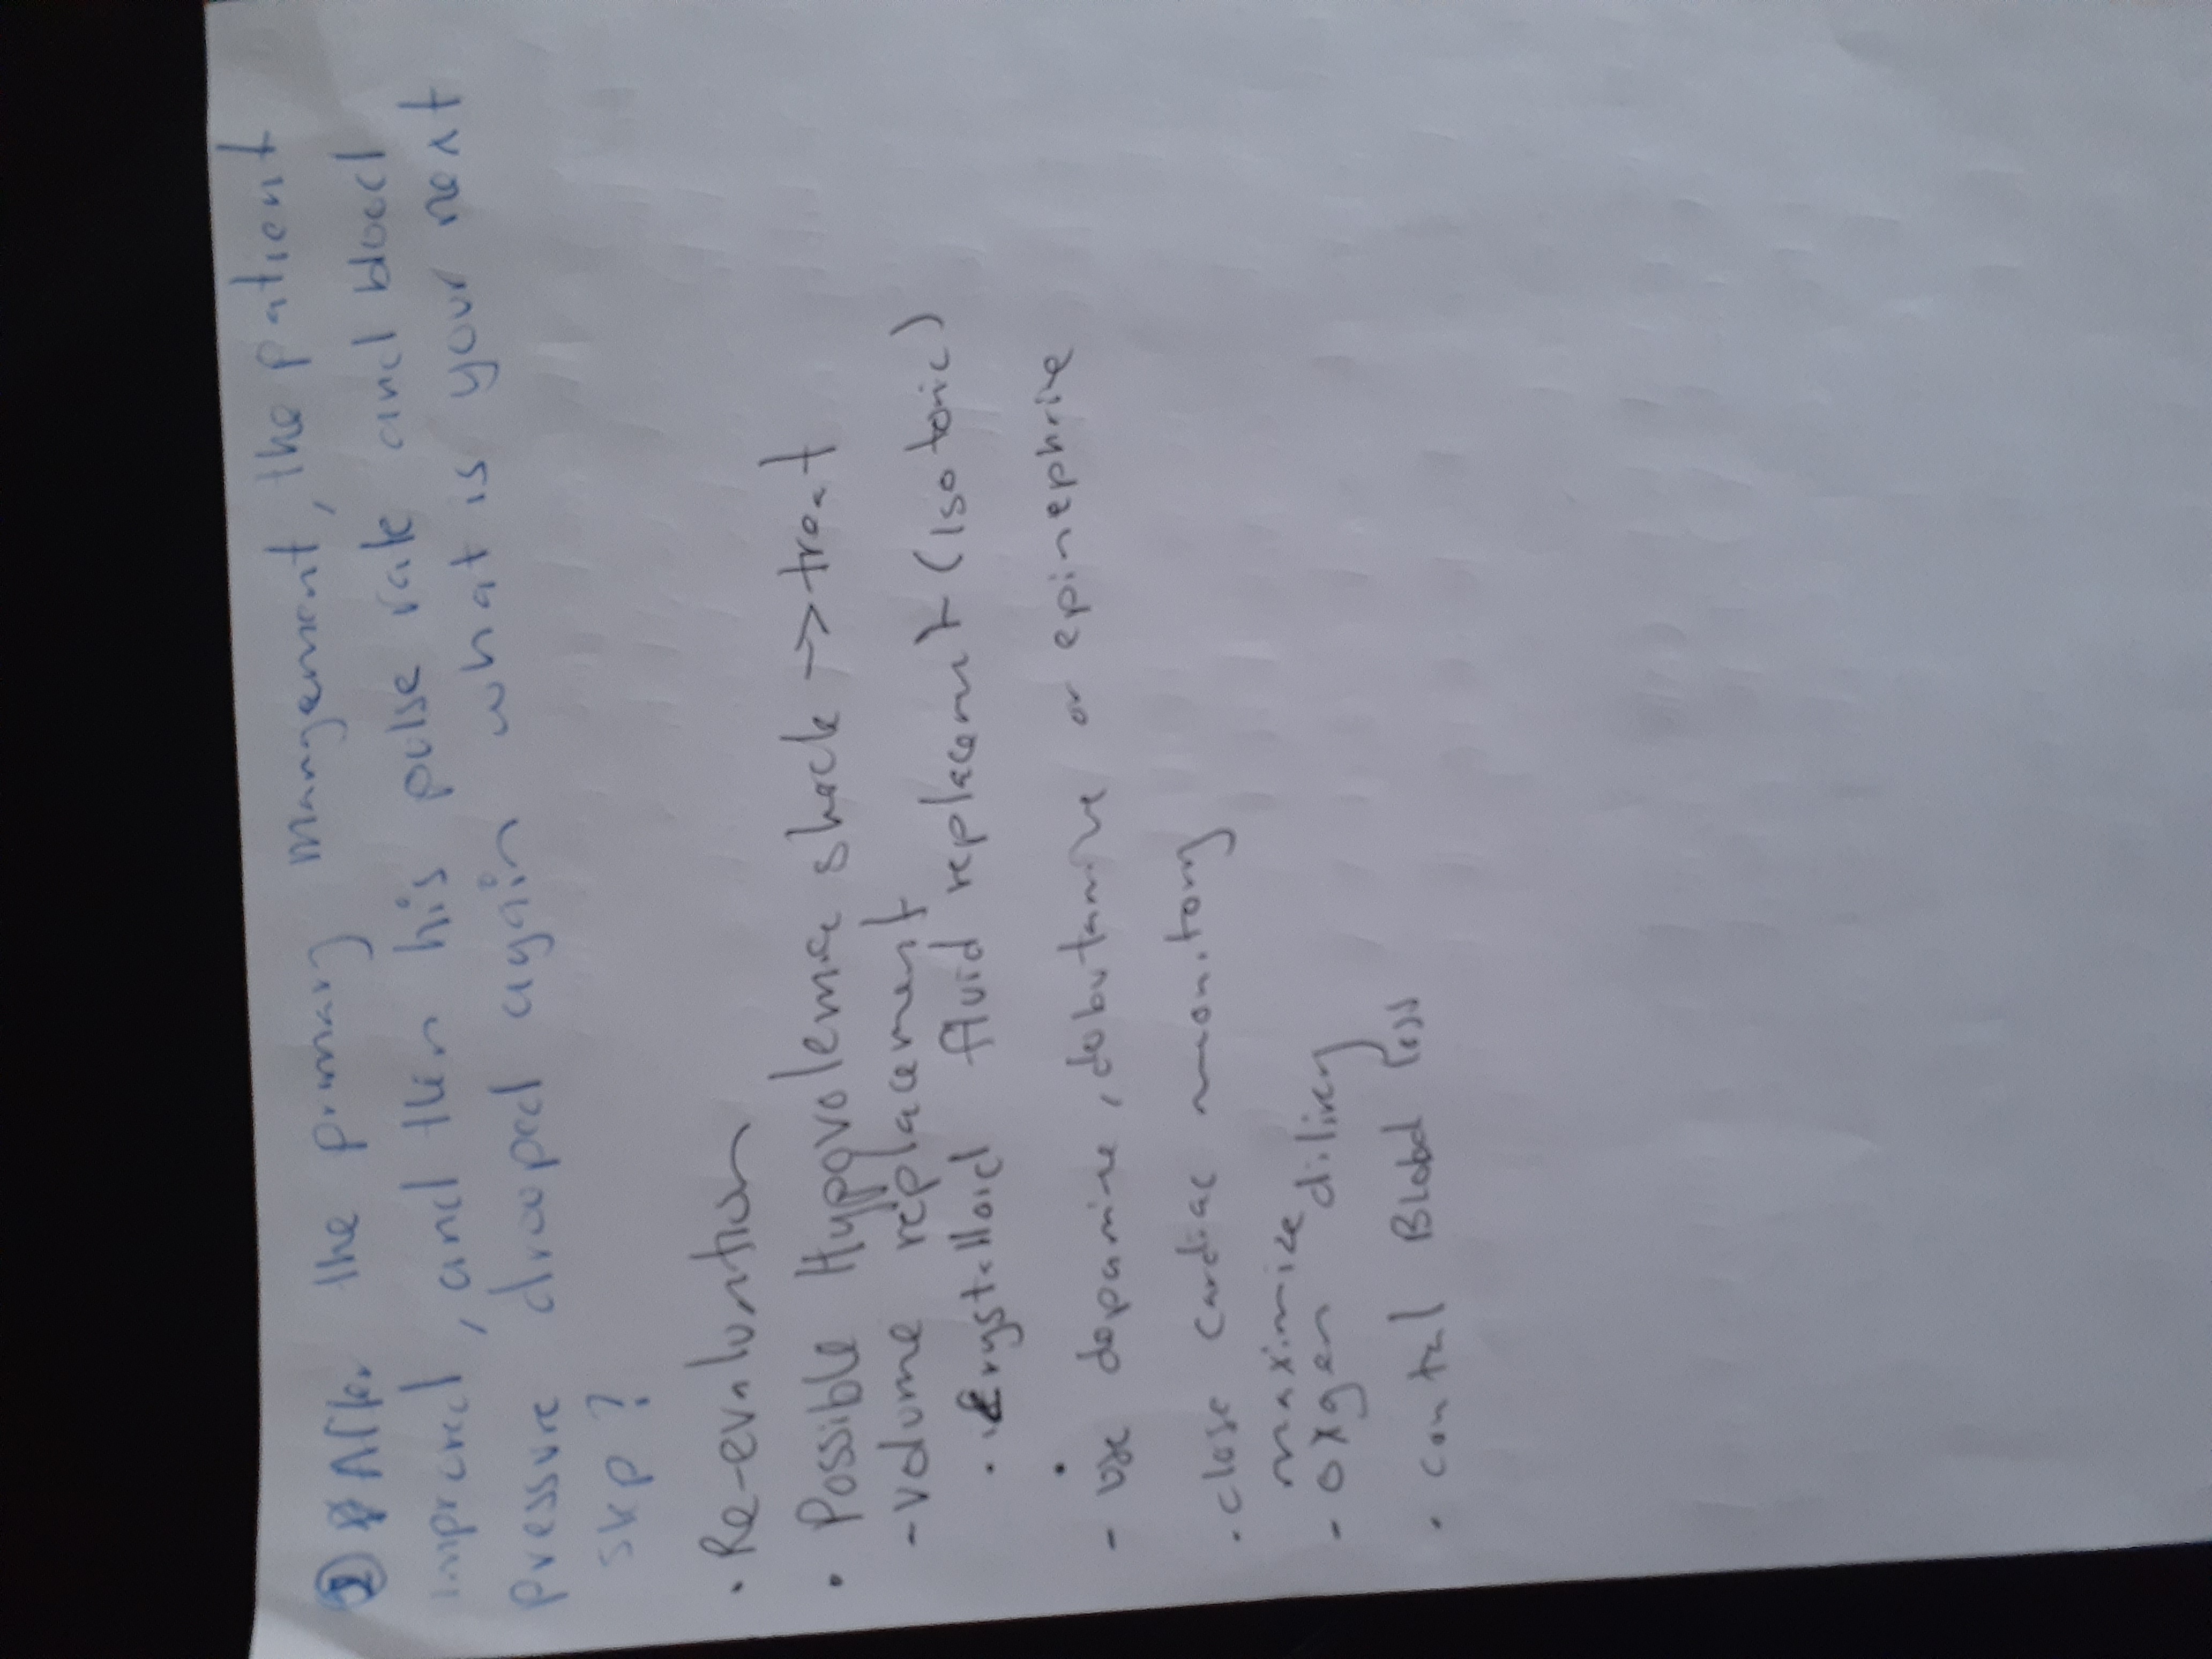 ② After the primary management, the patient
improved, and then his pulse rate and blood
pressure drooped again what is your next
step?
• Re-evalution
• Possible Hypovolemic shock → treat
- volume replacement
• crystalloid fluid replacement (isotonic)
•
- use dopamine, dobutamine or epinephrine
• close cardiac monitory
maximize
- oxgen dilivery
• contul Blood loss